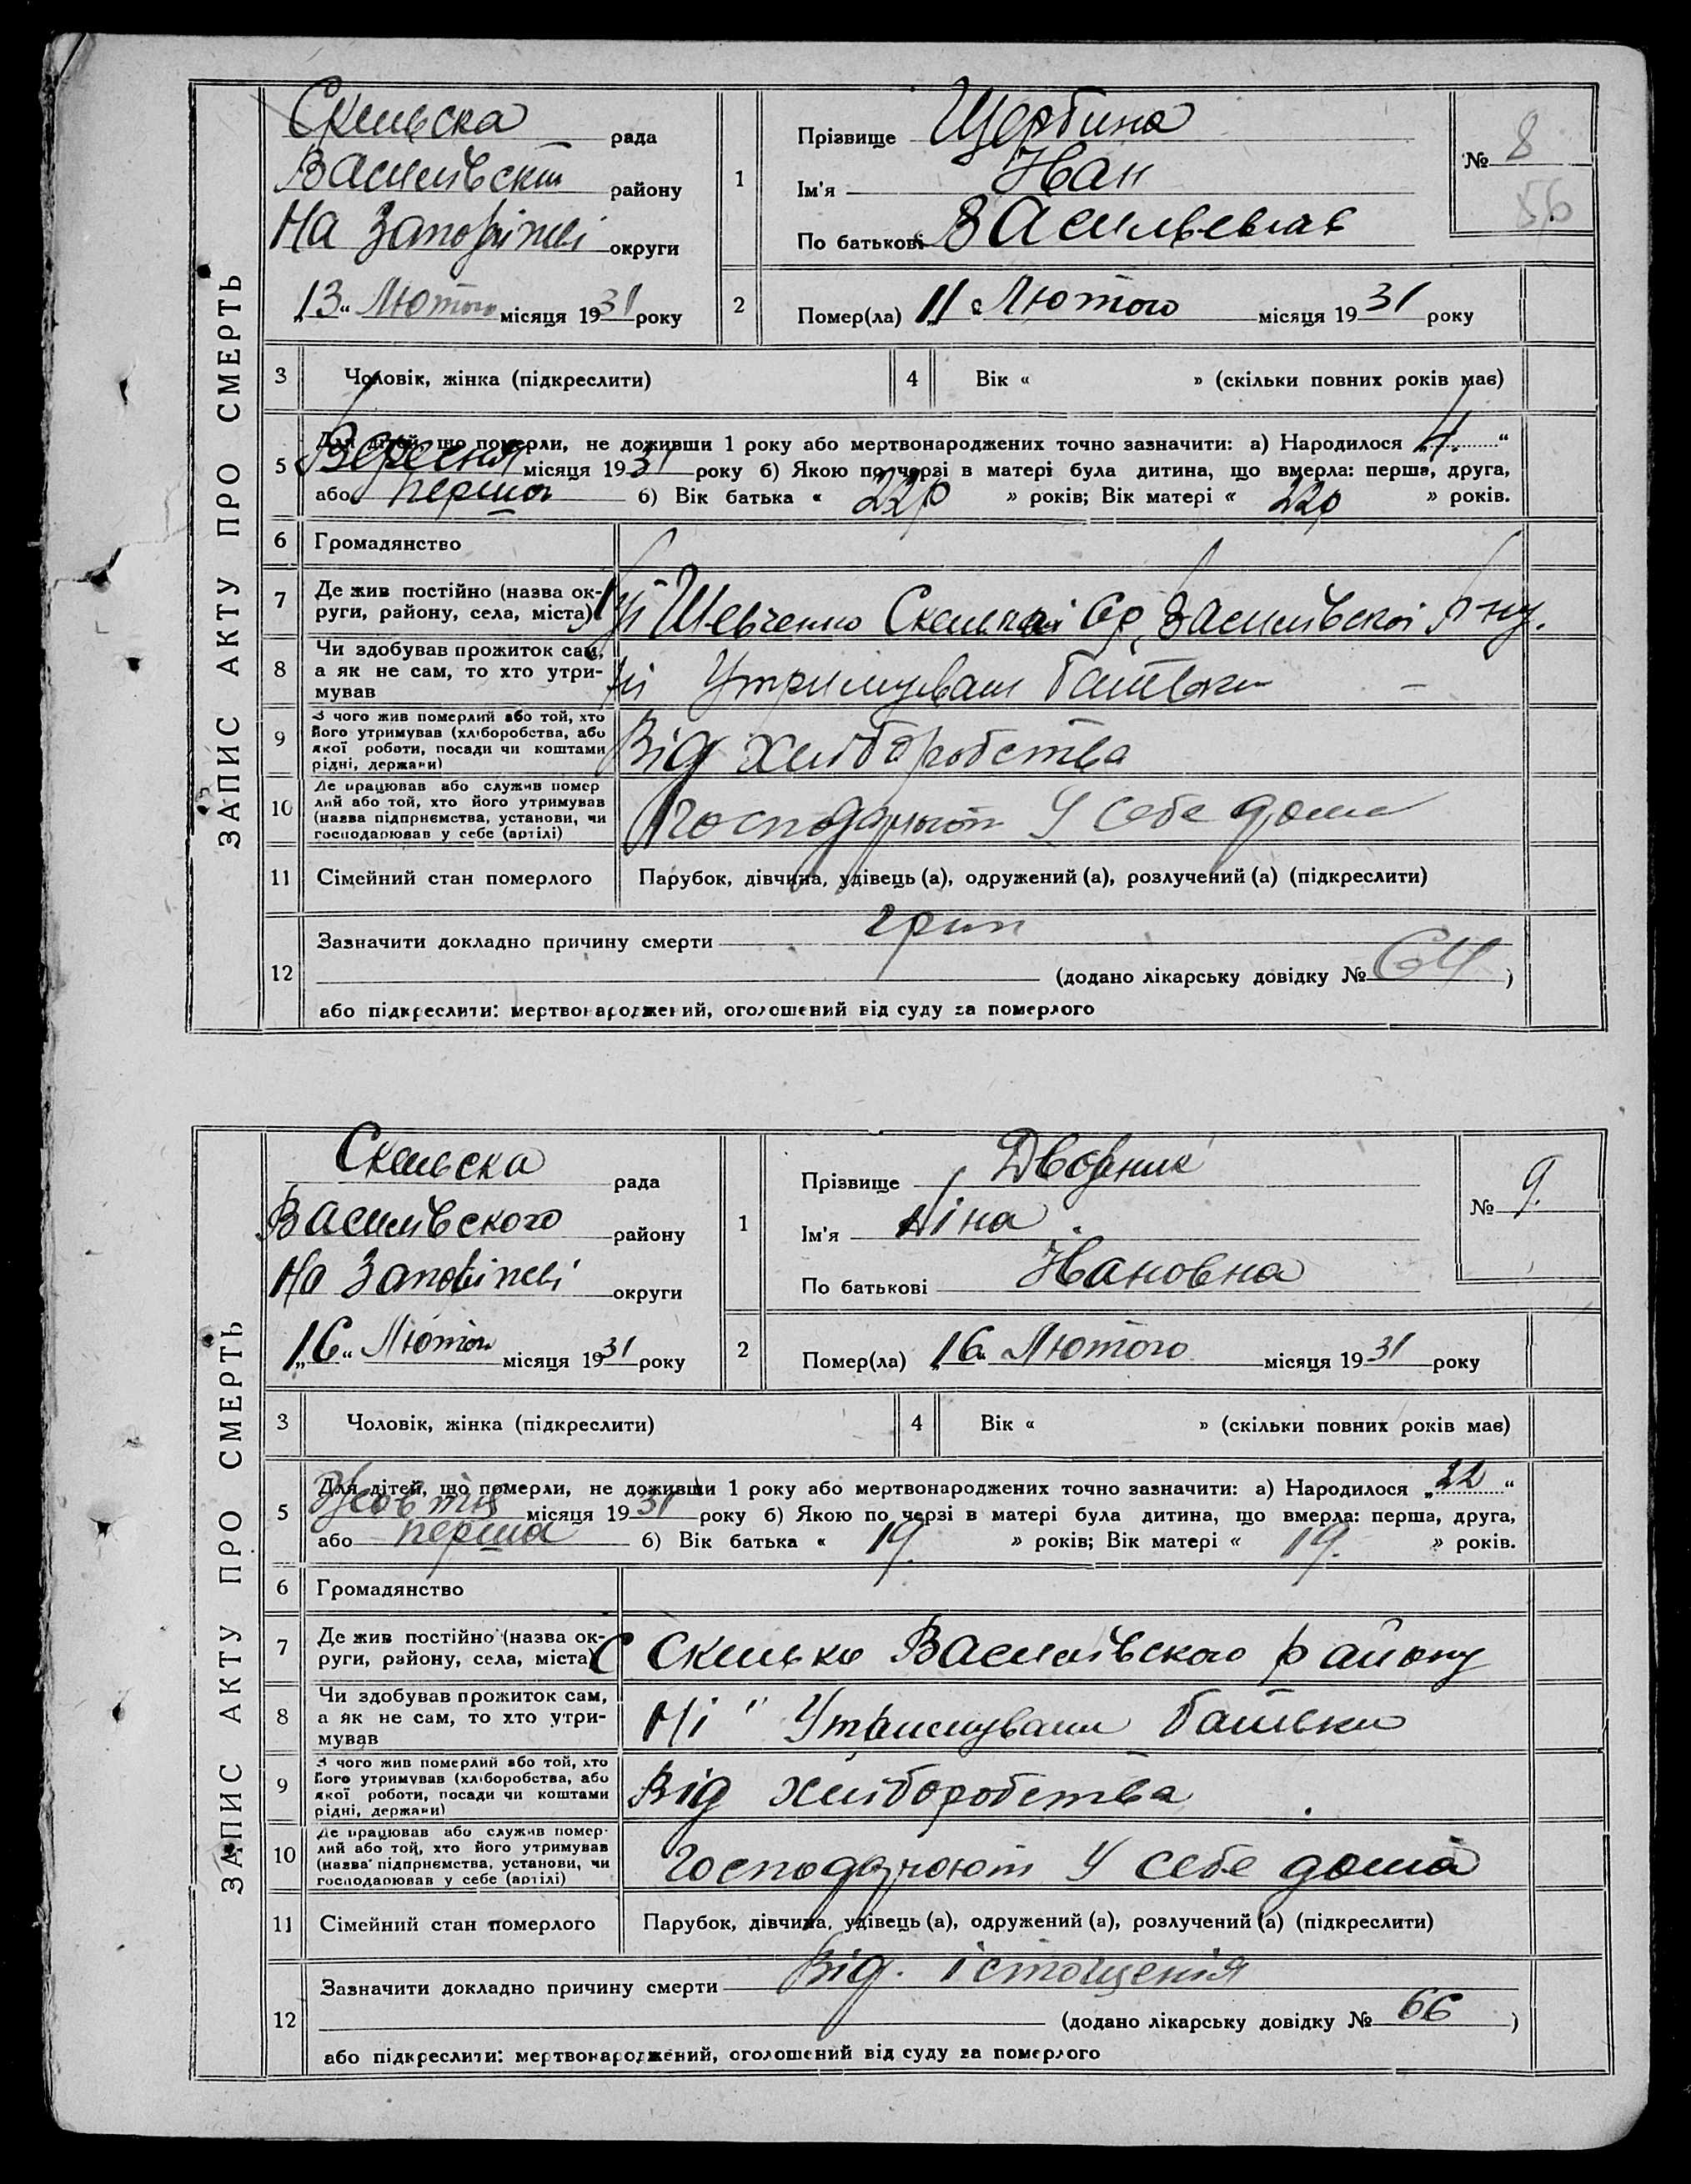 ЗАПИС АКТУ ПРО СМЕРТЬ
Скельска рада
Василівськ району
На Запоріжжі округи
„13“ Лютого місяця 1931 року
1
Прізвище Щербина
Ім'я Іван
По батькові Васильевич
№ 8
56
2
Помер(ла) „11“ Лютого місяця 1931 року
3
Чоловік, жінка (підкреслити)
4
Вік « » (скільки повних років має)
5
Для дітей, що померли, не доживши 1 року або мертвонароджених точно зазначити: а) Народилося „4“
Вересня місяця 1931 року б) Якою по черзі в матері була дитина, що вмерла: перша, друга,
або перша б) Вік батька « 22р » років; Вік матері « 22р » років.
6
Громадянство
7
Де жив постійно (назва ок-
руги, району, села, міста)
Шевченко Скельської Ср Василівской р-ну.
8
Чи здобував прожиток сам,
а як не сам, то хто утри-
мував
Ні Утримували батьки
9
З чого жив померлий або той, хто
його утримував (хліборобства, або
якої роботи, посади чи коштами
рідні, держави)
Від хліборобства
10
Де працював або служив помер
лий або той, хто його утримував
(назва підприємства, установи, чи
господарював у себе (артілі)
Господарюют У себе дома
11
Сімейний стан померлого
Парубок, дівчина, удівець (а), одружений (а), розлучений (а) (підкреслити)
12
Зазначити докладно причину смерти грип
(додано лікарську довідку № 64)
або підкреслити: мертвонароджений, оголошений від суду за померлого
ЗАПИС АКТУ ПРО СМЕРТЬ
Скельска рада
Василівского району
На Запоріжжі округи
„16“ Лютого місяця 1931 року
1
Прізвище Дворник
Ім'я Ніна
По батькові Івановна
№ 9.
2
Помер(ла) „16“ Лютого місяця 1931 року
3
Чоловік, жінка (підкреслити)
4
Вік « » (скільки повних років має)
5
Для дітей, що померли, не доживши 1 року або мертвонароджених точно зазначити: а) Народилося „22“
Жовтня місяця 1931 року б) Якою по черзі в матері була дитина, що вмерла: перша, друга,
або перша б) Вік батька « 19. » років; Вік матері « 19. » років.
6
Громадянство
7
Де жив постійно (назва ок-
руги, району, села, міста)
С Скельки Василівского району
8
Чи здобував прожиток сам,
а як не сам, то хто утри-
мував
Ні " Утримували батьки
9
З чого жив померлий або той, хто
його утримував (хліборобства, або
якої роботи, посади чи коштами
рідні, держави)
Від хліборобства
10
Де працював або служив помер-
лий або той, хто його утримував
(назва підприємства, установи, чи
господарював у себе (артілі)
Господарюют У себе дома
11
Сімейний стан померлого
Парубок, дівчина, удівець (а), одружений (а), розлучений (а) (підкреслити)
12
Зазначити докладно причину смерти Від. істощенія
(додано лікарську довідку № 66)
або підкреслити: мертвонароджений, оголошений від суду за померлого